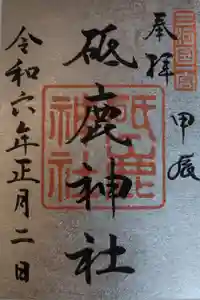 三河國一宮
奉拝
甲辰
砥鹿神社
砥鹿神社
令和六年正月二日